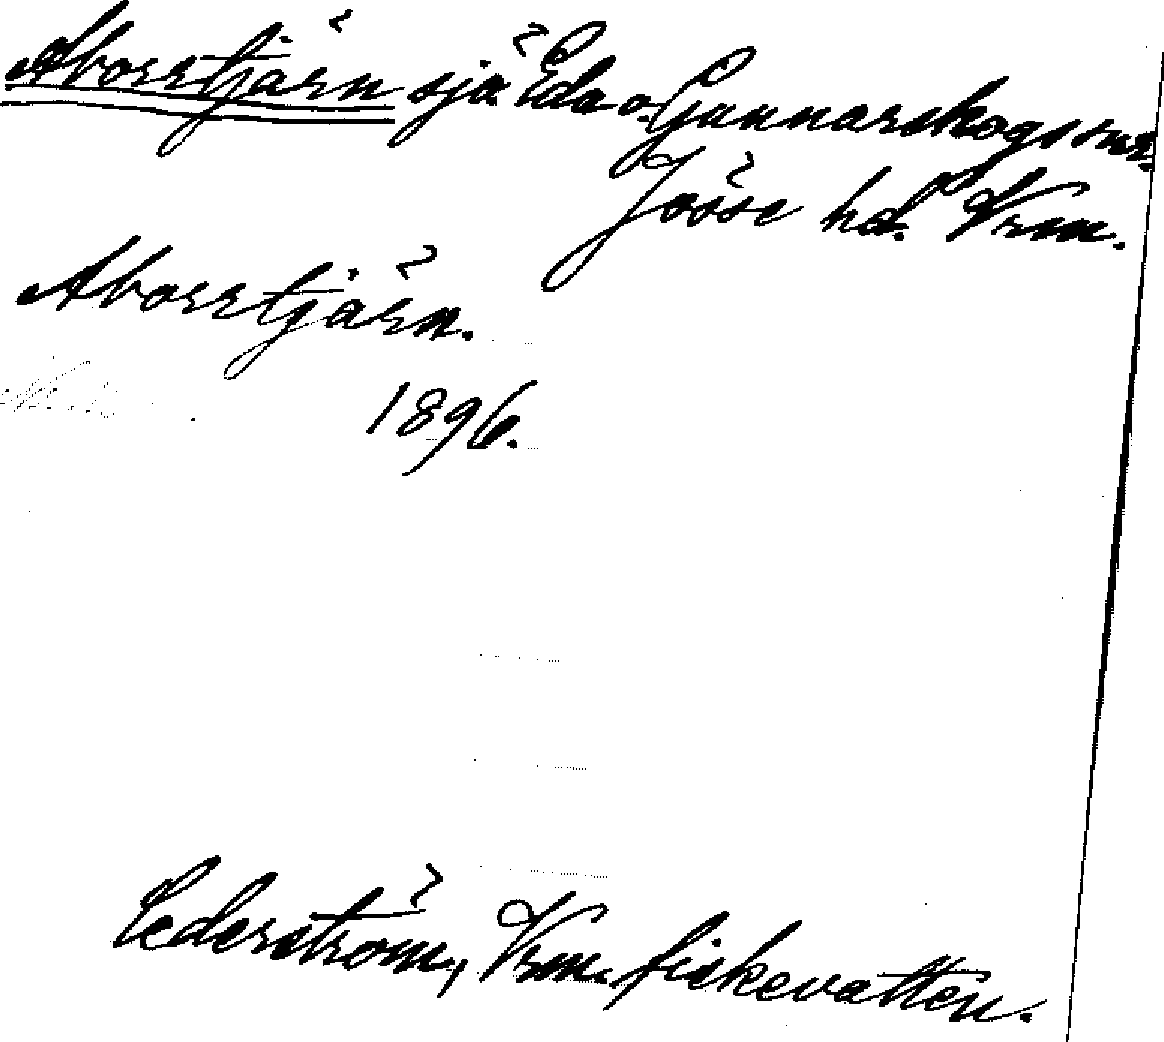 Aborrtjärn sjö Eda o. Gunnarskogs snr.
Jösse hd. Vrm.
Aborrtjärn.
1896.
Cederström, Vrm. fiskevatten.